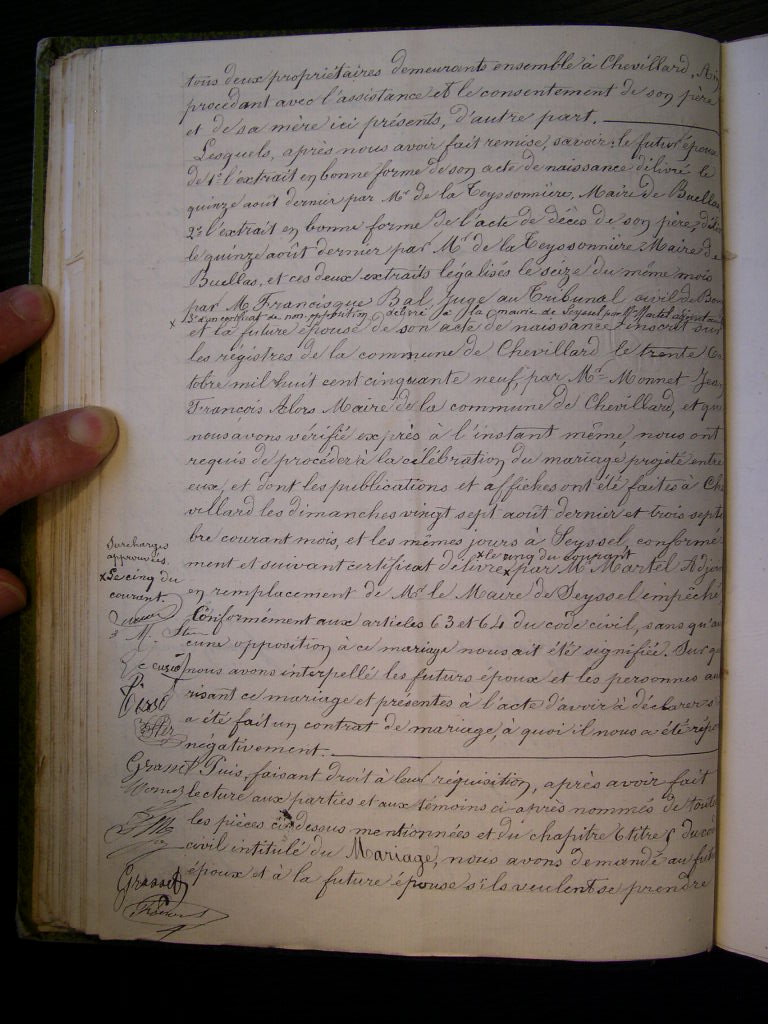 tous deux propriétaires demeurants ensemble à Chevillard,
procédant avec l'assistance et le consentement de son père
et de sa mère ici présents, d'autre part.
Lesquels, après nous avoir fait remise, savoir: le futur époux
de 1º l'extrait en bonne forme de son acte de naissance délivré le
quinze août dernier par Mr de la Teyssonnière, Maire de Buellas
2º l'extrait en bonne forme de l'acte de décès de son père,
le quinze août dernier par Mr de la Teyssonnière Maire de
Buellas, et ces deux extraits légalisés le seize du même mois
par M. Francisque Bal, Juge au Tribunal civil de
x 3º d'un certificat de non opposition délivré à la mairie de Seyssel par Mr Martel
et la future épouse de son acte de naissance inscrit sur
les régistres de la commune de Chevillard le trente Oc
tobre mil huit cent cinquante neuf, par Mr Monnet Jean
François Alors Maire de la commune de Chevillard, et que
nous avons vérifié exprès à l'instant même, nous ont
requis de procéder à la célébration du mariage projeté entre
eux, et dont les publications et affiches ont été faites à Che
villard les dimanches vingt sept août dernier et trois septem
bre courant mois, et les mêmes jours à Seyssel, conformé
x le cinq du courant
ment et suivant certificat délivré x par Mr Martel Adjoint
en remplacement de Mr le Maire de Seyssel empêché,
Conformément aux articles 63 et 64 du code civil, sans qu'au
cune opposition à ce mariage nous ait été signifiée. Sur quoi
nous avons interpellé les futurs époux et les personnes au
risant ce mariage et présentes à l'acte d'avoir à déclarer s'il
a été fait un contrat de mariage, à quoi il nous a été répon
négativement.
Puis, faisant droit à leur réquisition, après avoir fait
lecture aux parties et aux témoins ci-après nommés de toutes
les pièces ci-dessus mentionnées et du chapitre 6 titre 5 du code
civil intitulé du Mariage, nous avons demandé au futur
époux et à la future épouse s'ils veulent se prendre
Surcharges
approuvées.
x Le cinq du
courant.
Grasset